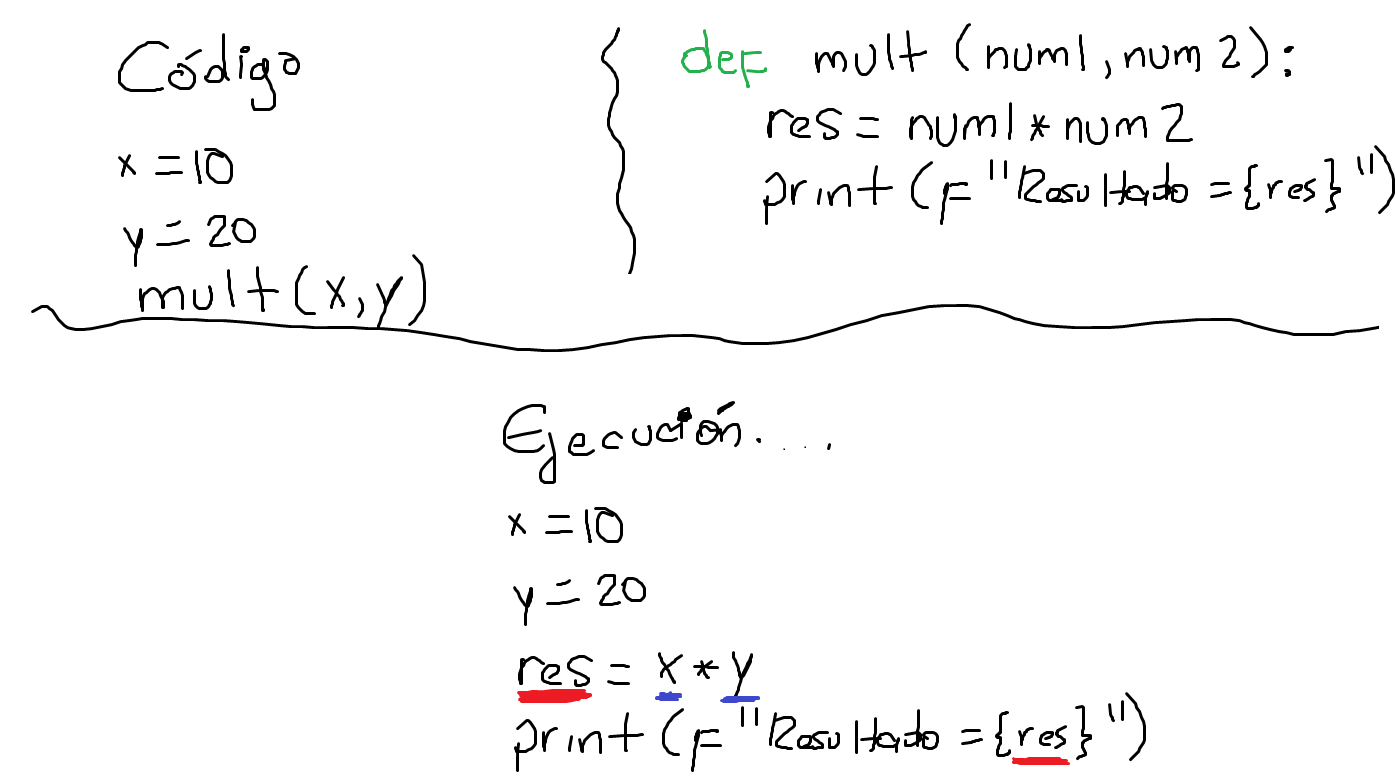 Código
x = 10
y = 20
mult(x,y)
def mult (num1, num2):
res = num1 * num2
print (F "Resultado = {res}")
Ejecución....
x = 10
y = 20
res = x * y
print (F "Resultado = {res}")